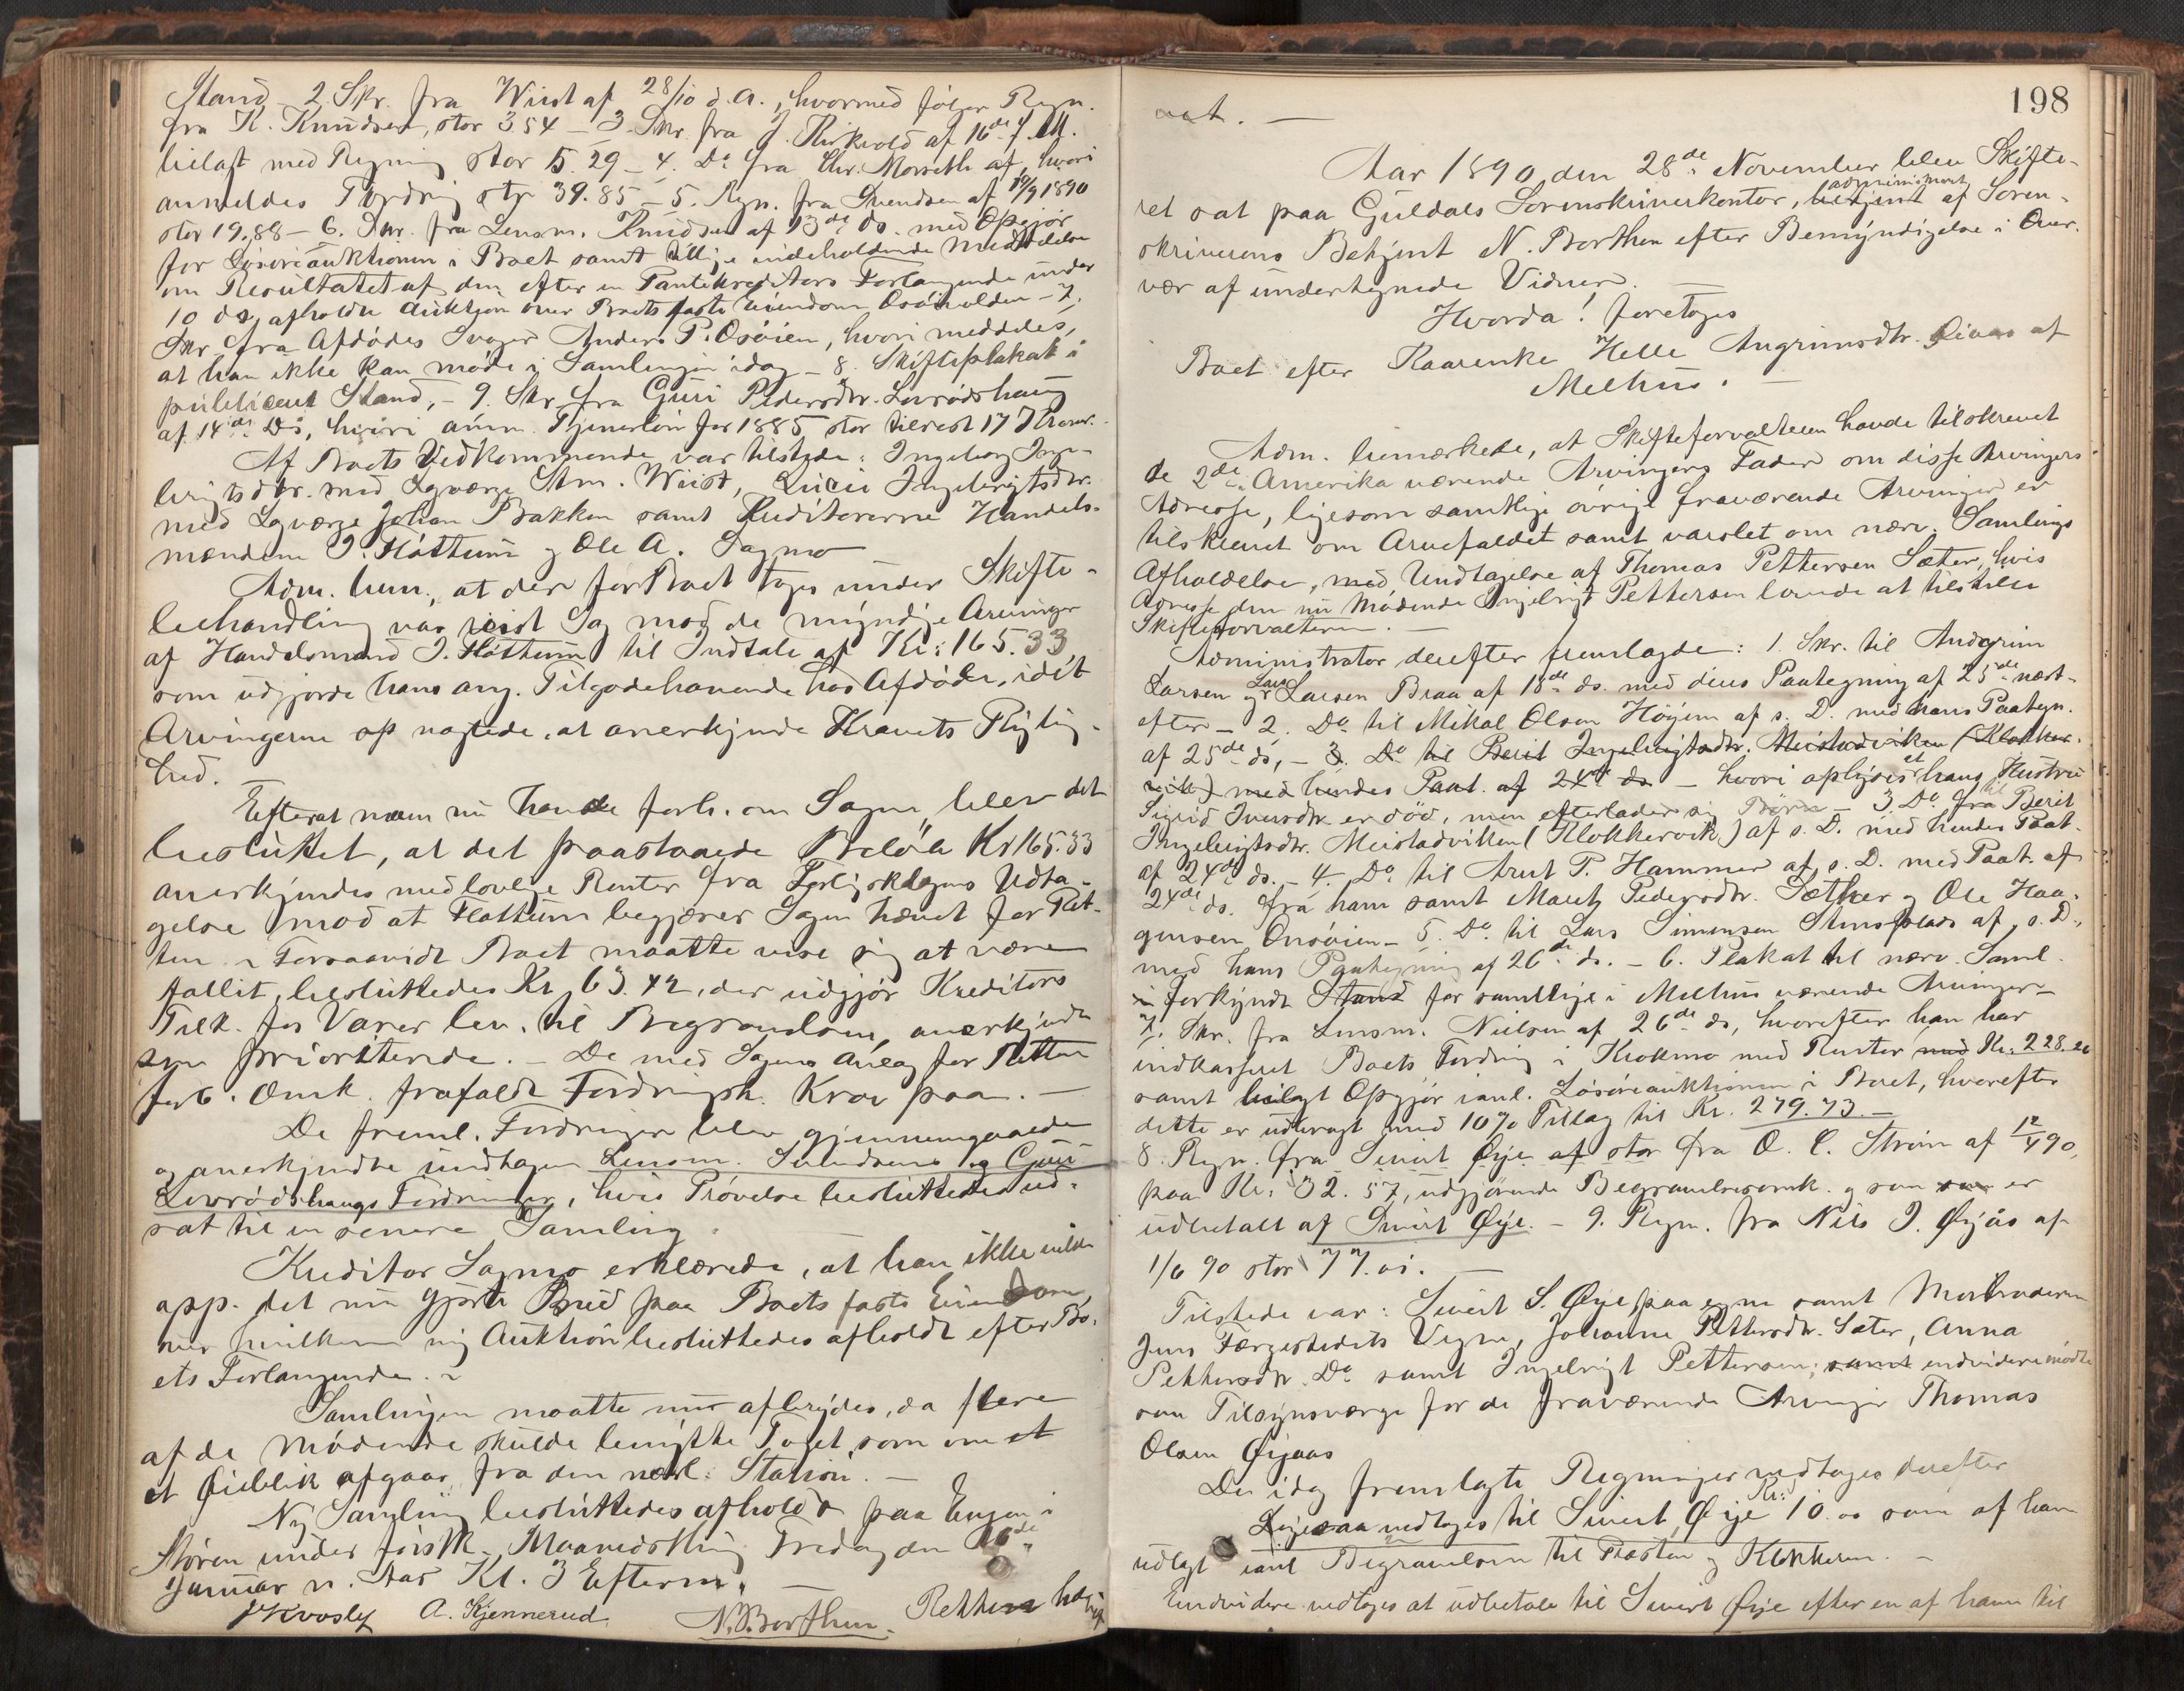 Stand 2. Skr. fra Wiist af 28/10 d.A., hvormed følger Regn.
fra K. Knudsen, stor 354 – 3. Skr. fra J. Kirkvold af 16de f.M.
bilagt med Regning stor 5.29 – 4. Do fra Chr. Morseth af, hvori
anmeldes Fordring stor 39.85 – 5. Regn. fra Svendsen af 19/9 1890
stor 19.88 – 6. Skr. fra Lensm. Knudsen af 13de ds. med Opgjør
for Løsøreauktionen i Boet samt tillige indeholdende Meddelelse
om Resultatet af den efter en Pantekreditors Forlangende under
10 ds. afholdte Auktion over Boets faste Eiendom Osøivolden – 7.
Skr. fra Afdødes Svoger Anders P. Osøien, hvori meddeles,
at han ikke kan møde i Samlingen idag – 8. Skifteplakat i
publiceret Stand, – 9. Skr. fra Guri Pedersdtr. Lovrødshaug
af 14de Ds, hvori anm. Tjenerløn for 1885 stor tilrest 17 Kroner.
Af Boets Vedkommende var tilstede: Ingeborg Inge-
brigtsdtr. med Lagværge Sten. Wiist, Lucie Ingebrigtsdtr.
med Lagværge Johan Bakken samt Kreditorerne Handels-
mændene J. Flottum og Ole A. Sagmo
Adm. bem., at der før Boet toges under Skifte-
behandling var reist Sag mod de myndige Arvinger
af Handelsmand J. Flottum til Indtale af Kr: 165.33,
som udgjorde hans ang. Tilgodehavende hos Afdøde, idet
Arvingerne op nægtede at anerkjende Kravets Rigtig-
hed.
Efterat man nu havde forh. om Sagen, blev det
besluttet, at det paastaaede Beløb Kr 165.33
anerkjendes med lovlige Renter fra Forligsklagens Udta-
gelse mod at Flottum begjærer Sagen hævet for Ret-
ten. – Forsaavidt Boet maatte vise sig at være
fallit, besluttedes Kr. 63.42, der udgjør Kreditors
Tilk. for Varer lev. til Begravelsen, anerkjendt
som prioriterede. – De med Sagens Anlæg for Retten
forb. Omk. frafaldt Fordringsh. Krav paa. –
De freml. Fordringer blev gjennemgaaede
og anerkjendte undtagen Lensm. Svendsens og Guri
Lovrødshaugs Fordringer, hvis Prøvelse besluttedes ud-
sat til en senere Samling.
Kreditor Sagmo erklærede, at han ikke vilde
app. det nu gjorte Bud paa Boets faste Eiendom,
over hvilken ny Auktion besluttedes afholdt efter Bo-
ets Forlangende. –
Samlingen maatte nu afbrydes, da flere
af de Mødende skulde benytte Toget, som om et
et Øieblik afgaar fra den nærl. Station. –
Ny Samling besluttedes afholdt paa Engen i
Støren under førstk. Maanedsthing Fredag den 16de
Januar n. Aar Kl. 3 Efterm. –
A. Kjennerud N. Borthen. Retten hævet
198
sat. –
Aar 1890 den 28de November blev Skifte-
ret sat paa Guldals Sorenskriverkontor, betjent administreret af Soren-
skriverens Betjent N. Borthen efter Bemyndigelse i Over-
vær af undertegnede Vidner. –
Hvorda! foretoges
Boet efter Kaarenke Helle Angrimsdtr. Øiaas af
Melhus. –
Adm. bemærkede, at Skifteforvalteren havde tilskrevet
de 2de i Amerika værende Arvingers Fader om disse Arvingers
Adresse, ligesom samtlige øvrige fraværende Arvinger er
tilskrevet om Arvefaldet samt varslet om nærv. Samlings
Afholdelse, med Undtagelse af Thomas Pettersen Sæter, hvis
Adresse den nu Mødende Ingebrigt Pettersen lovede at tilstille
Skifteforvalteren. –
Administrator derefter fremlagde: 1. Skr. til Andgrim
Larsen og Lars Larsen Braa af 18de ds. med deres Paategning af 25de næst-
efter – 2. Do til Mikal Olsen Höyem af s. D. med hans Paategn.
af 25de ds, – 3. Do til Berit Ingebrigtsdtr. Meistadvikken (Klokker-
vik) med hendes Paat. af 24de ds – hvori oplyses at hans Hustru
Sigrid Iversdtr er död, men efterlader sig Börn – 3. Do fra til Berit
Ingebrigtsdtr. Meistadvikken (Klokkervik) af s. D. med hendes Paat.
af 24de ds. – 4. Do til Arnt P. Hammer af s. D. med Paat. af
24de ds. fra ham samt Marit Pedersdtr. Sæther og Ole Haa-
gensen Onsøien – 5. Do til Lars Simensen Stensplads af s. D.,
med hans Paategning af 26de ds. – 6. Plakat til nærv. Saml.
i forkyndt Stand for samtlige i Melhus værende Arvinger –
7. Skr. fra Lensm. Nielsen af 26de ds, hvorefter han har
indkasseret Boets Fordring i Krokmo med Renter med Kr. 228.26
samt bilagt Opgjør ianl. Løsøreauktionen i Boet, hvorefter
dette er udbragt med 10% Tillæg til Kr. 279.73. –
8. Regn. fra Sivert Øye af stor fra O. C. Strøm af 12/4 90,
paa Kr: 32.57, udgjørende Begravelsesomk. og som som er
udbetalt af Sivert Øye. – 9. Regn. fra Nils J. Øyås af
1/6 90 stor 77.oi. –
Tilstede var: Sivert S. Øye paa egne samt Morbroderen
Jens Færgestedets Vegne, Johanne Pettersdtr. Sæter, Anna
Pettersdtr. Do samt Ingebrigt Pettersen; samt endvidere mødte
som Tilsynsværge for de fraværende Arvinger Thomas
Olsen Øyaas
De idag fremlagte Regninger vedtoges derefter
Ligesaa vedtoges til Sivert Øye Kr: 10.00 som af ham
udlagt ianl Begravelsen til Præsten og Klokkeren. –
Endvidere vedtoges at udbetale til Sivert Øye efter en af ham til